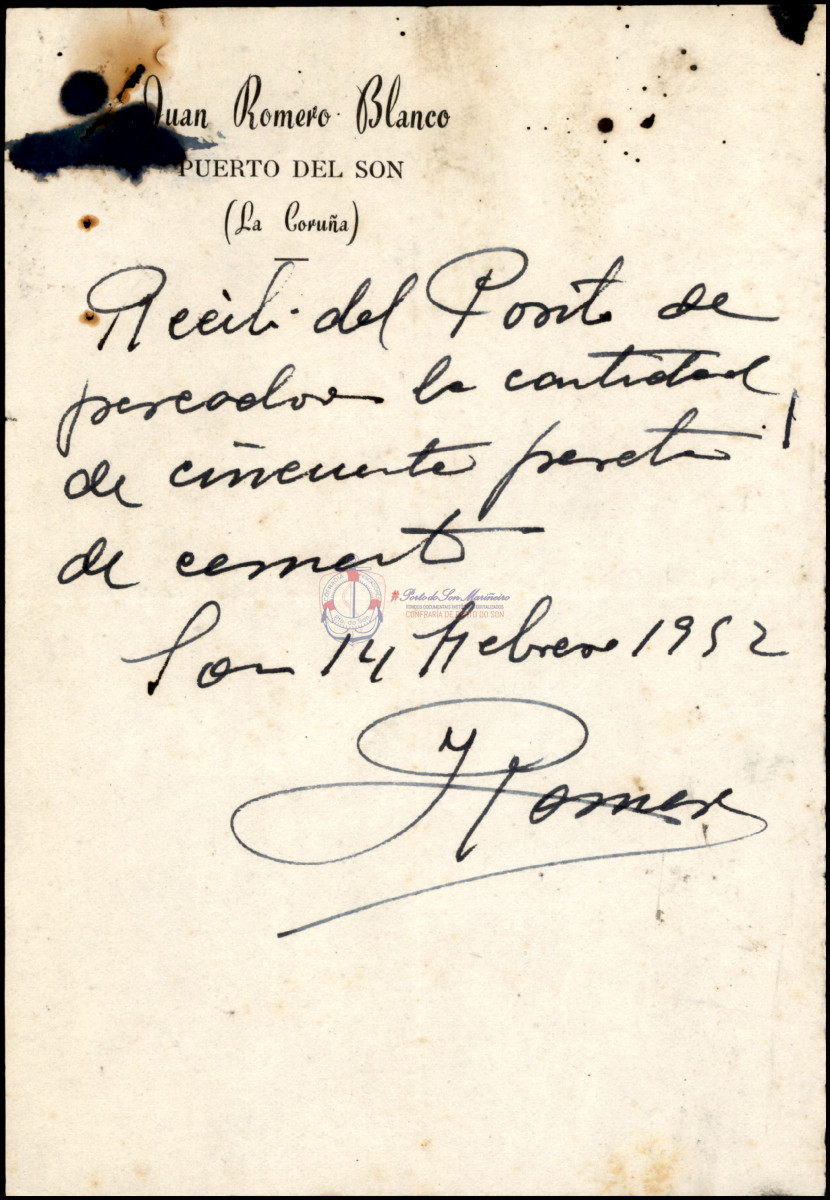 Juan Romero Blanco
PUERTO DEL SON
(La Coruña)
Recibi del Posito de
pescadores la cantidad
de cincuenta pesetas
de cemento
# Porto do Son Mariñeiro
FONDOS DOCUMENTAIS HISTÓRICOS DIXITALIZADOS
CONFRARÍA DE PORTO DO SON
Son 14 Febrero 1952
J Romero